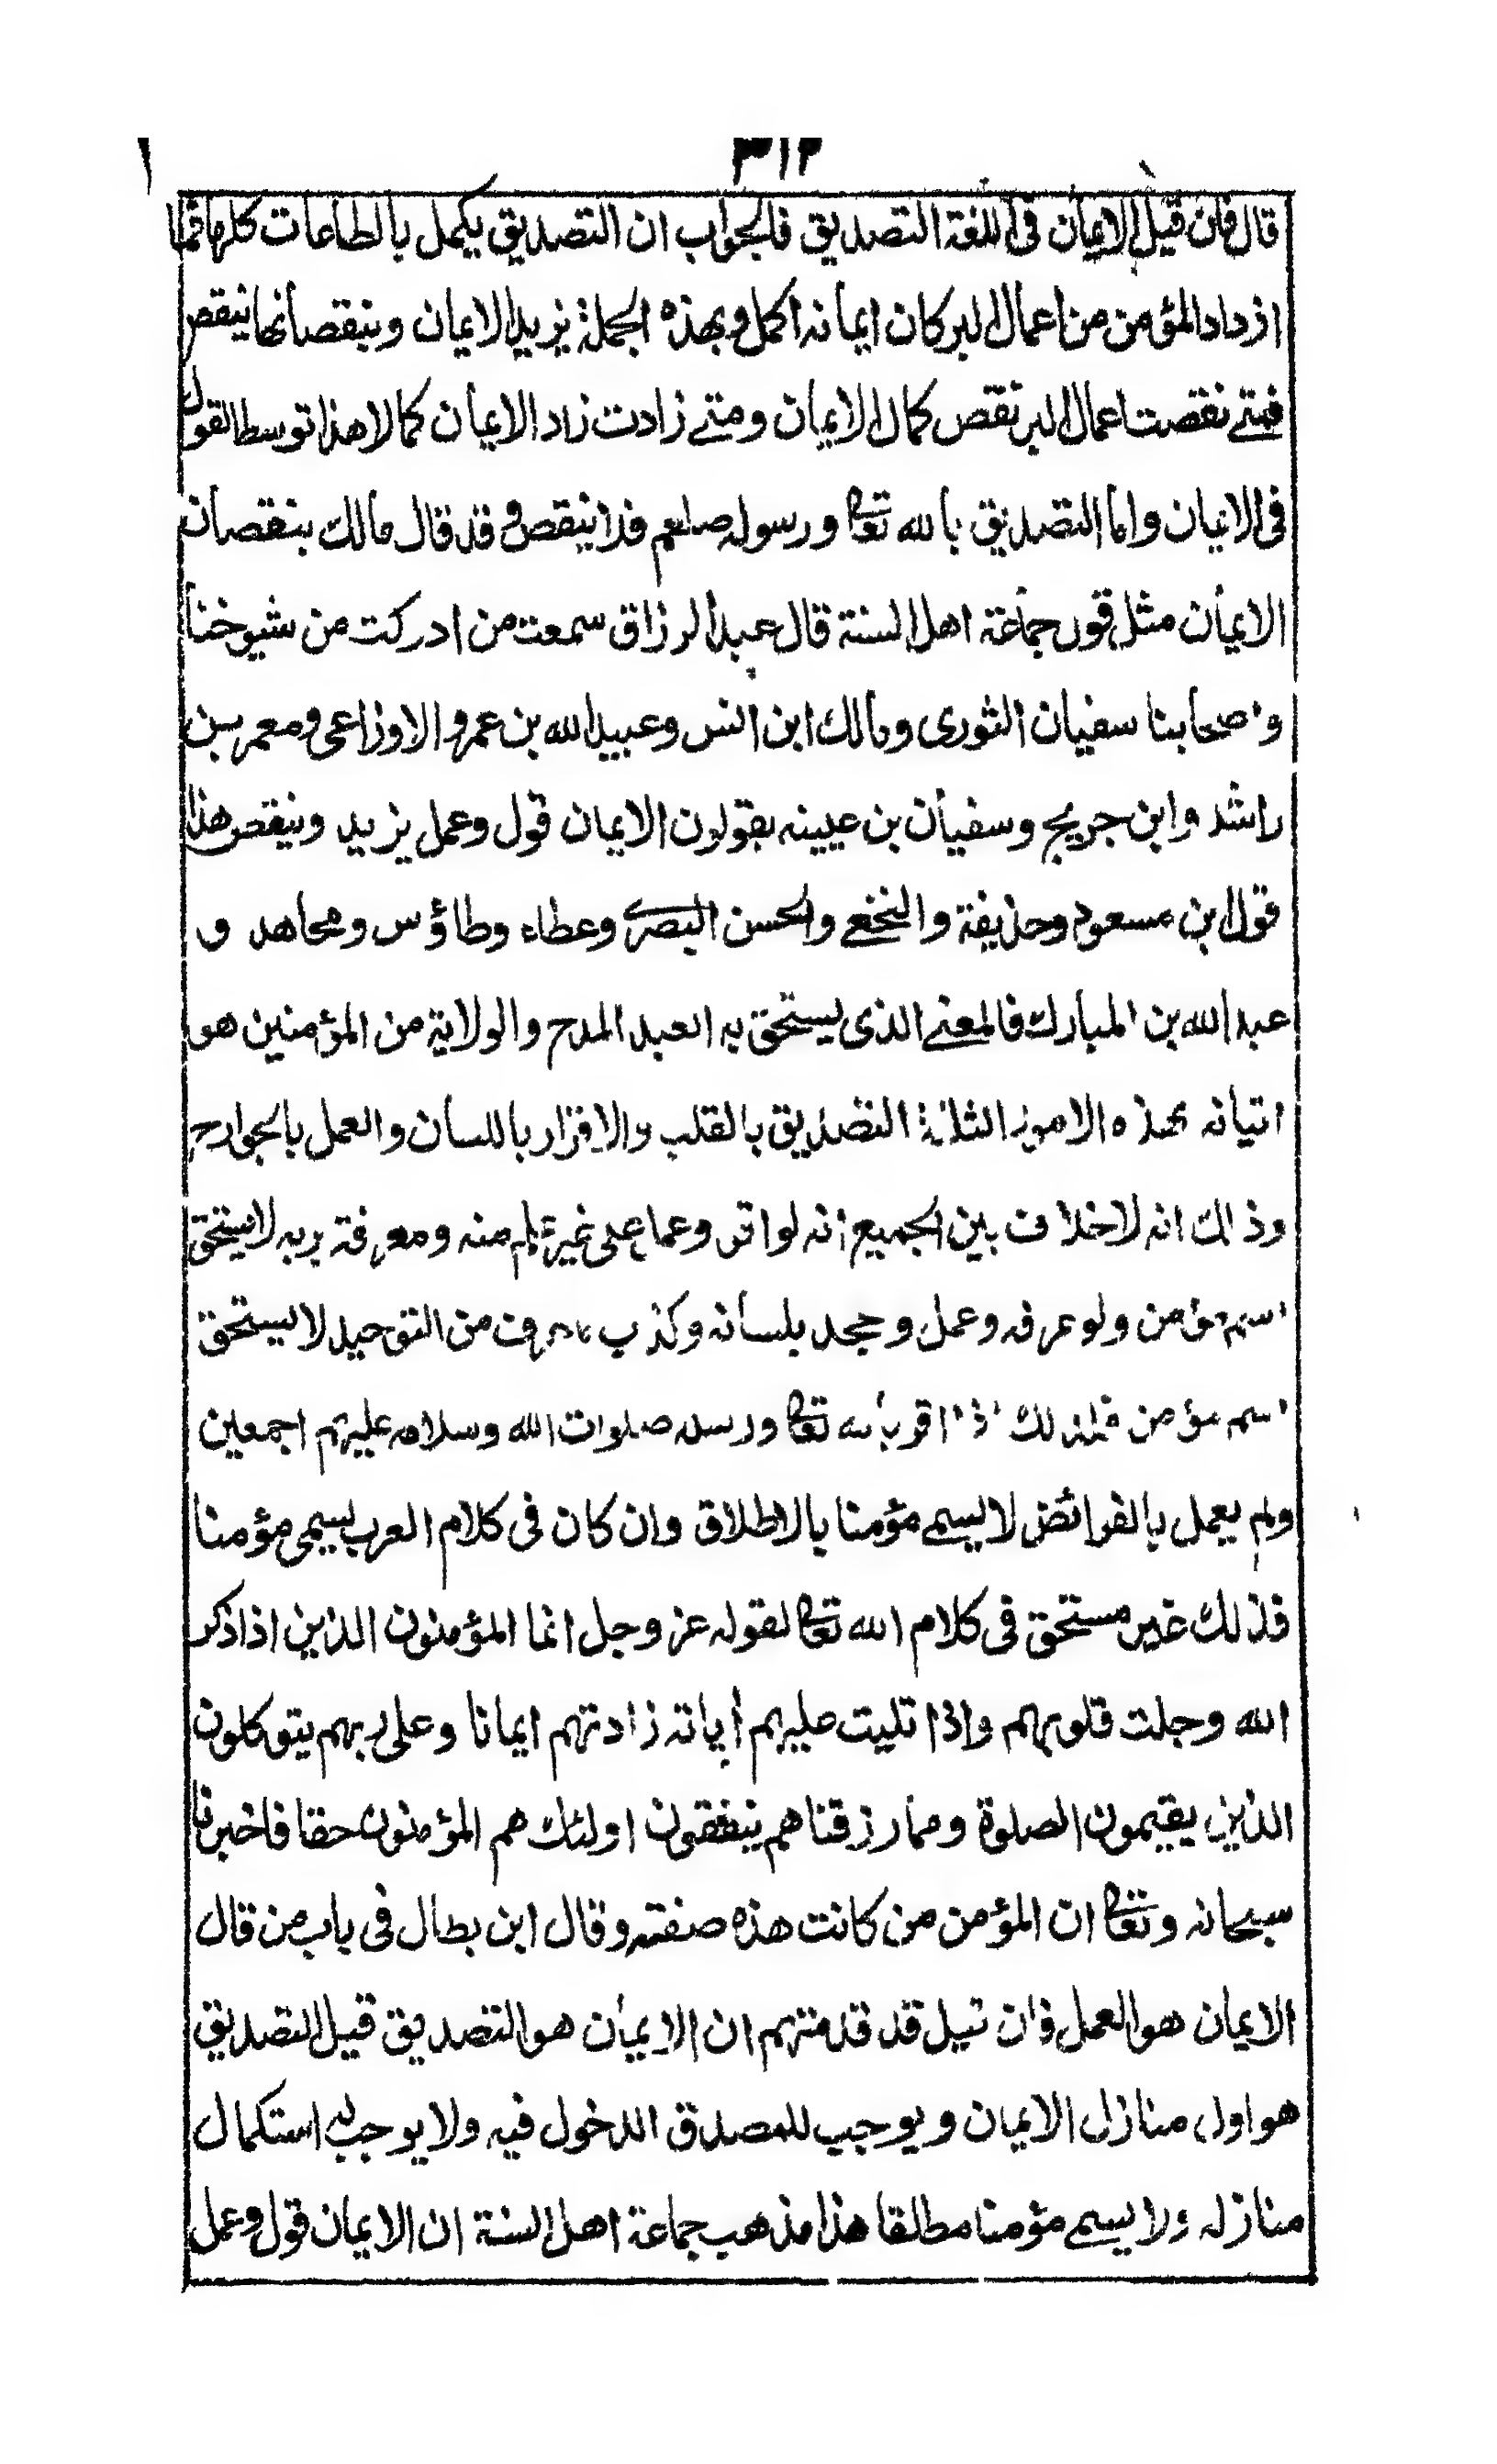 ٣١٢
قال فان قيل الايمان فى اللغة التصديق فالجواب ان التصديق يكمل بالطاعات كلها فما
ازداد المؤمن من اعمال البر كان ايمانه اكمل وبهذه الجملة يزيد الايمان وبنقصانها ينقص
فمتے نقصت اعمال البر نقص كمال الايمان ومتے زادت زاد الايمان كمالا هذا توسط القول
فى الايمان واما التصديق بالله تعالى ورسوله صلعم فلا ينقص وقد قال مالك بنقصان
الايمان مثل قول جماعة اهل السنة قال عبد الرزاق سمعت من ادركت من شيوخنا
واصحابنا سفيان الثورى ومالك ابن انس وعبيد الله بن عمرو الاوزاعى ومعمر بن
راشد وابن جريج وسفيان بن عيينه يقولون الايمان قول وعمل يزيد وينقص هذا
قول ابن مسعود وحذيفة والنخعے والحسن البصرے وعطاء وطاؤس ومجاهد و
عبد الله بن المبارك فالمعنے الذى يستحق به العبد المدح والولاية من المؤمنين هو
اتيانه بهذه الامور الثلثة التصديق بالقلب والاقرار باللسان والعمل بالجوارح
وذلك انه لا خلاف بين الجميع انه لو اقر وعمل على غير علم منه ومعرفة بربه لا يستحق
اسم مؤمن ولو عرفه وعمل وجحد بلسانه وكذب ما عرف من التوحيد لا يستحق
اسم مؤمن فلذلك اذا اقر بالله تعالى ورسله صلوات الله وسلامه عليهم اجمعين
ولم يعمل بالفرائض لا يسمے مؤمنا بالاطلاق وان كان فى كلام العرب يسمى مؤمنا
فذلك غير مستحق فى كلام الله تعالى لقوله عز وجل انما المؤمنون الذين اذا ذكر
الله وجلت قلوبهم واذا تليت عليهم آياته زادتهم ايمانا وعلى ربهم يتوكلون
الذين يقيمون الصلوة ومما رزقناهم ينفقون اولئك هم المؤمنون حقا فاخبرنا
سبحانه وتعالى ان المؤمن من كانت هذه صفته وقال ابن بطال فى باب من قال
الايمان هو العمل فان قيل قد قدمتم ان الايمان هو التصديق قيل التصديق
هو اول منازل الايمان ويوجب للمصدق الدخول فيه ولا يوجب له استكمال
منازله ولا يسمے مؤمنا مطلقا هذا مذهب جماعة اهل السنة ان الايمان قول وعمل